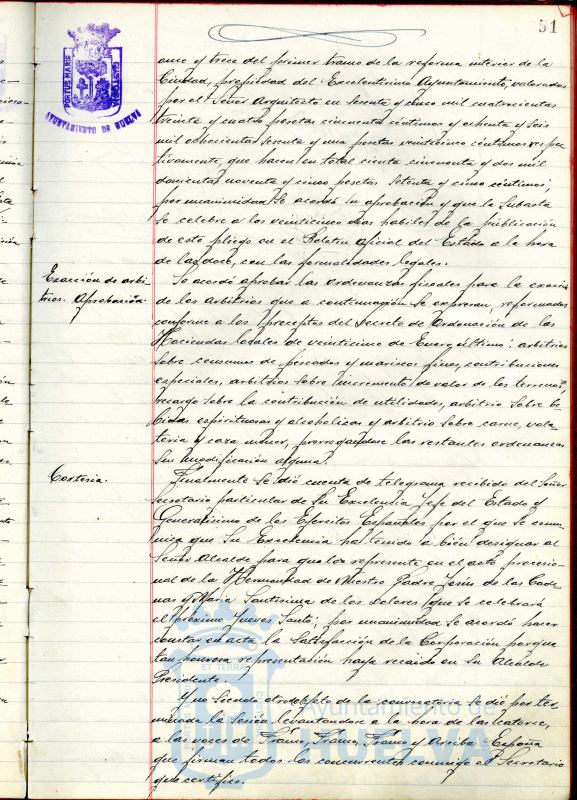 51
PORTUS MARIS ET TERRAE CUSTODIA
AYUNTAMIENTO DE HUELVA
once y trece del primer tramo de la reforma interior de la
Ciudad, propiedad del Excelentísimo Ayuntamiento, valorados
por el Señor Arquitecto en sesenta y cinco mil cuatrocientas
veinte y cuatro pesetas cincuenta céntimos y ochenta y seis
mil ochocientas sesenta y una pesetas veinticinco céntimos respec-
tivamente, que hacen en total ciento cincuenta y dos mil
doscientas noventa y cinco pesetas setenta y cinco céntimos;
por unanimidad se acordó su aprobación y que la subasta
se celebre a los veinticinco días habiles de la publicación
de este pliego en el Boletín Oficial del Estado a la hora
de las doce, con las formalidades legales.
Exacción de arbi-
trios. Aprobación.
Se acordó aprobar las ordenanzas fiscales para la exacción
de los arbitrios que a continuación se expresan, reformados
conforme a los preceptos del Decreto de Ordenación de las
Haciendas locales de veinticinco de Enero último: arbitrios
sobre consumos de pescados y mariscos finos, contribuciones
especiales, arbitrios sobre incremento de valor de los terrenos,
recargo sobre la contribución de utilidades, arbitrio sobre be-
bidas espirituosas y alcoholicas y arbitrio sobre carne, vola-
teria y caza menor, prorrogandose las restantes ordenanzas
sin modificación alguna.
Cortesia.
Finalmente se dió cuenta de telegrama recibido del Señor
Secretario particular de Su Excelencia Jefe del Estado y
Generalisimo de los Ejercitos Españoles por el que se comu-
nica que Su Excelencia ha tenido a bien designar al
Señor Alcalde para que los represente en el acto procesio-
nal de la Hermandad de Nuestro Padre Jesús de las Cade-
nas y María Santísima de los Dolores que se celebrará
el próximo Jueves Santo; por unanimidad se acordó hacer
constar en acta la satisfacción de la Corporación porque
tan honrosa representación haya recaido en su Alcalde
Presidente.
Y no siendo otro el objeto de la convocatoria se dió por ter-
minada la sesión levantandose a la hora de las catorce,
a las voces de Franco, Franco, Franco y Arriba España
que firman todos los concurrentes conmigo el Secretario
que certifico.
Ayuntamiento de
HUELVA